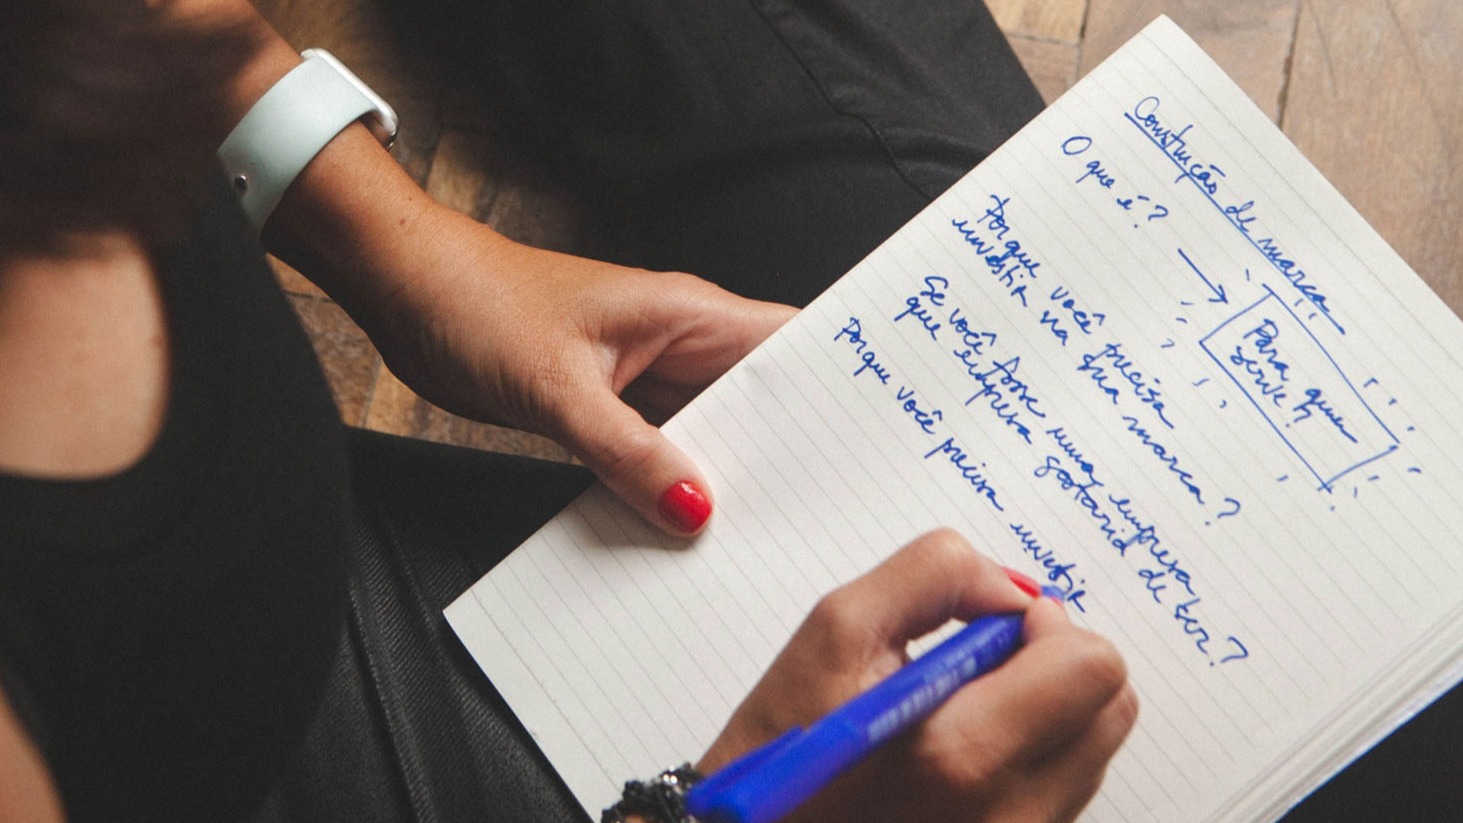 Construção de marca
O que é?
Para quem
serve?
Porque você precisa
investir na sua marca?
Se você fosse numa empresa
que empresa gostaria de ter?
Porque você precisa investir